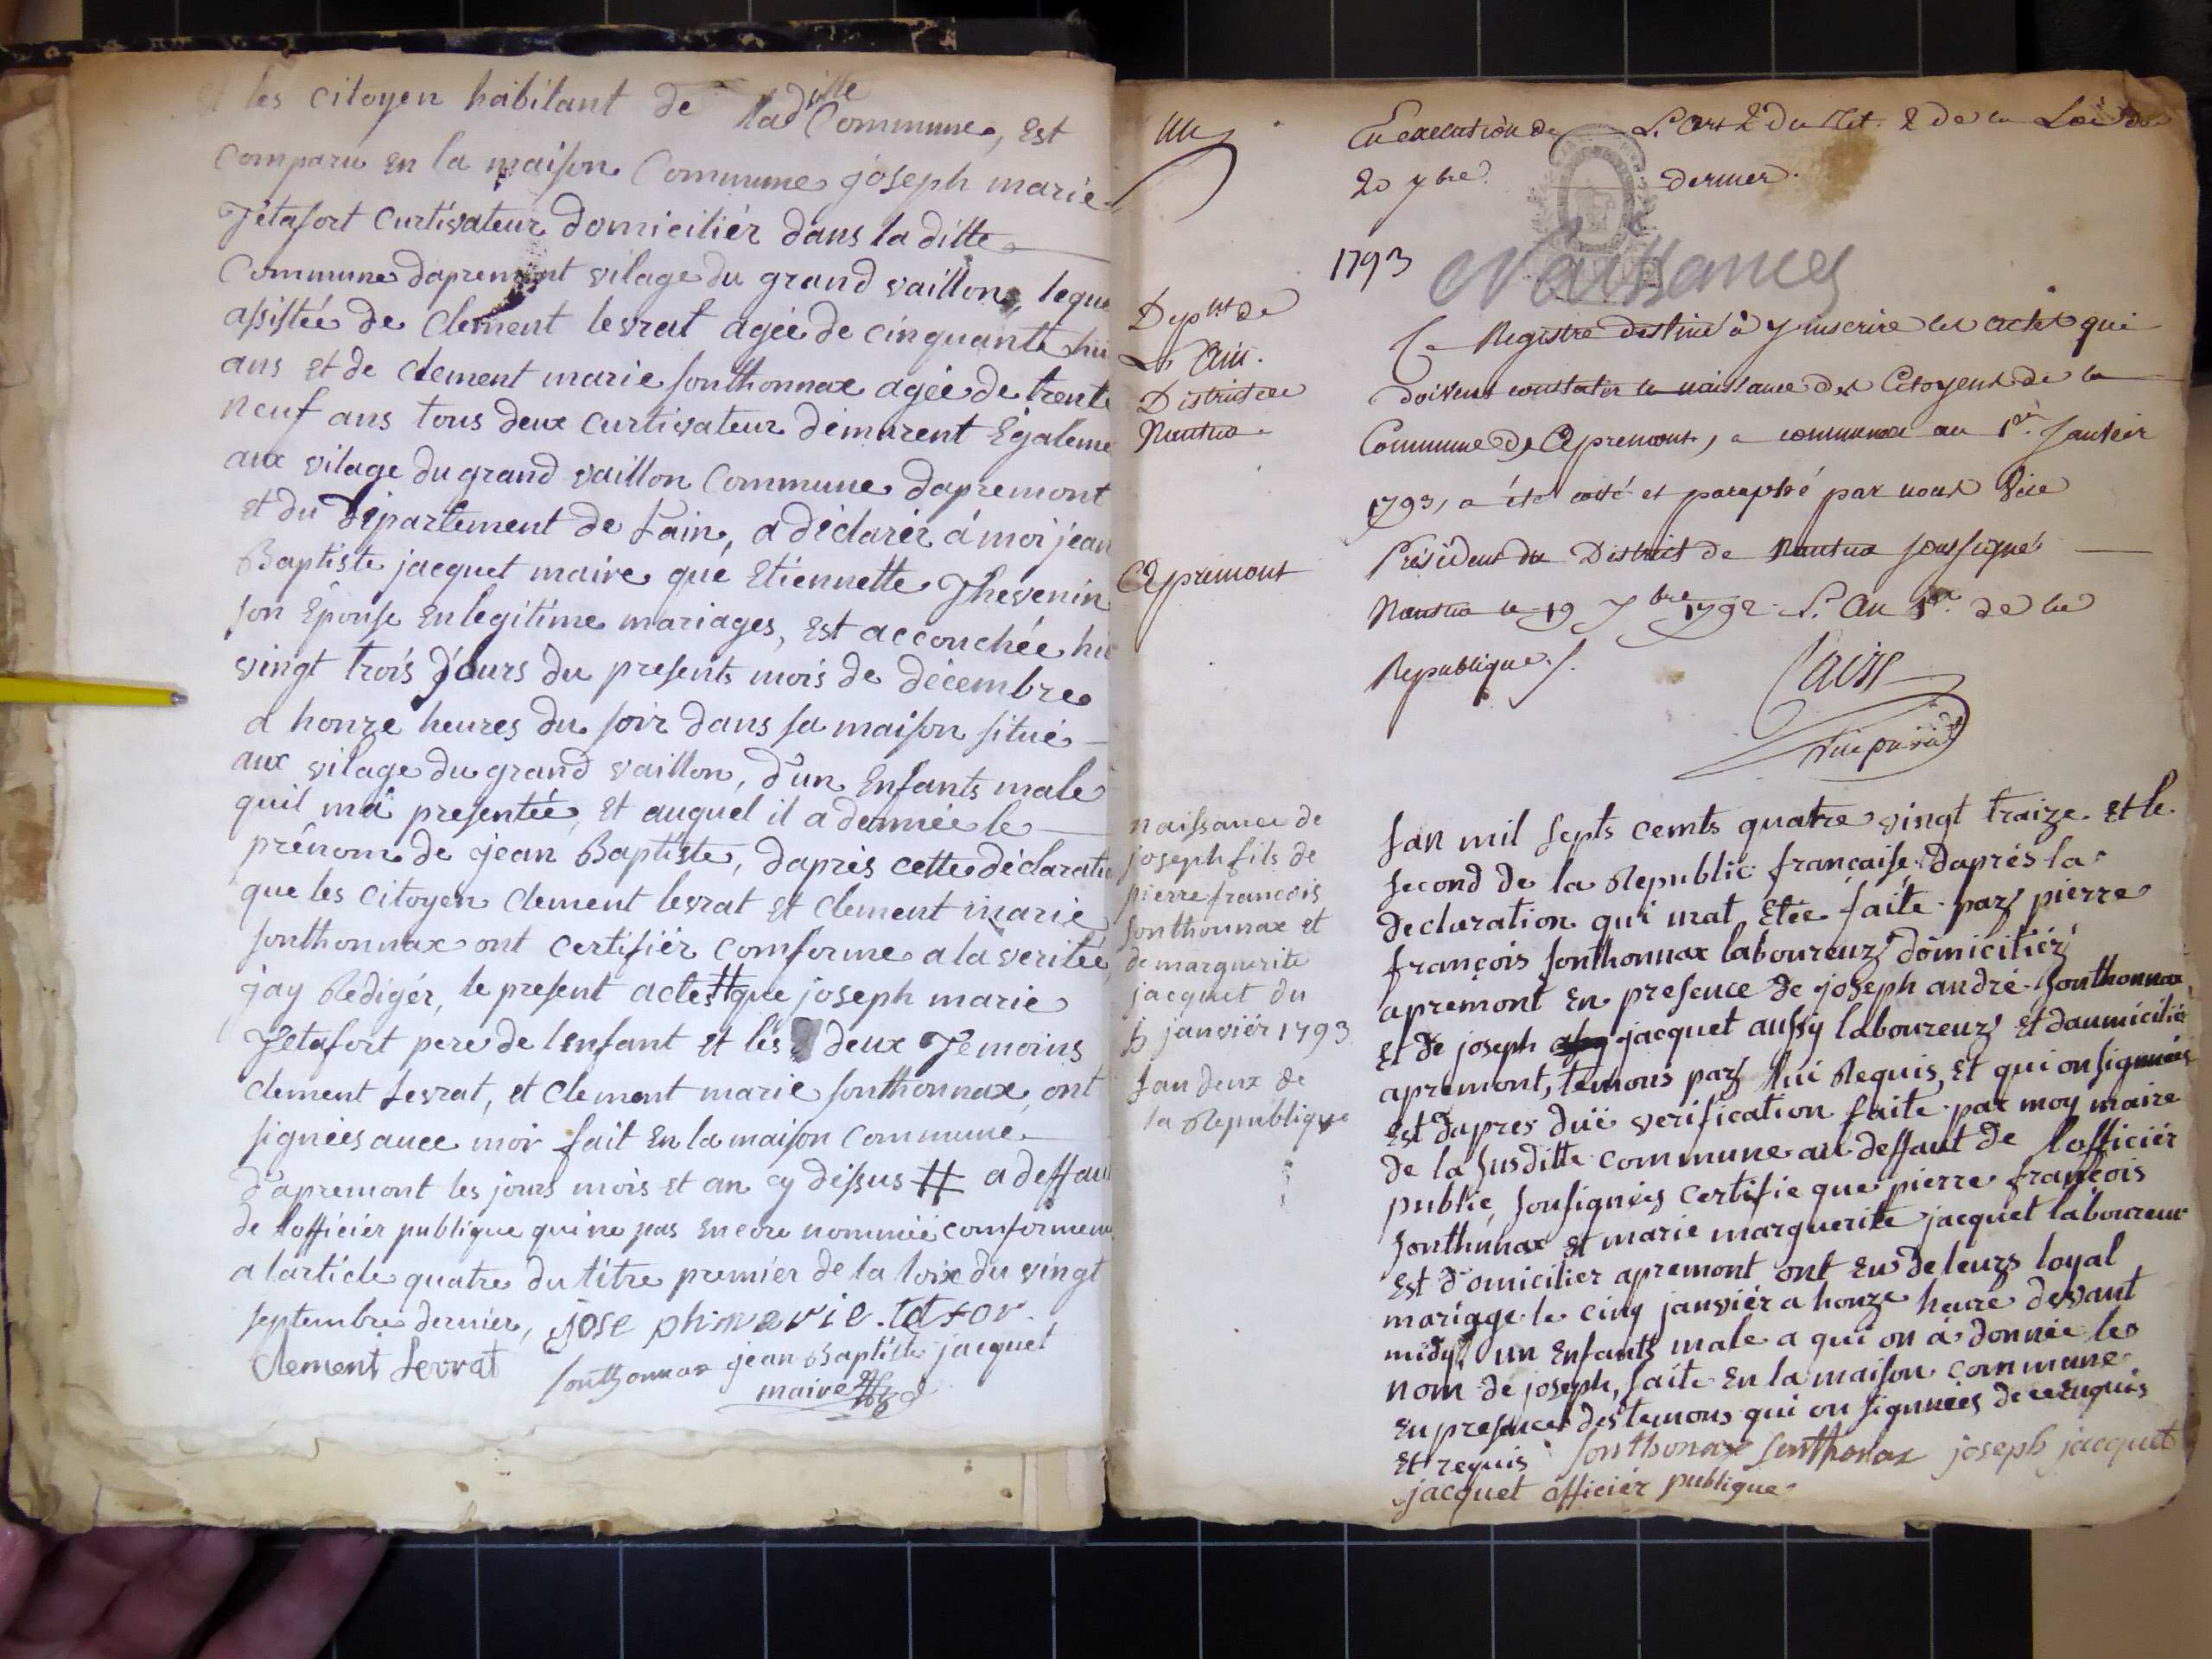 et les citoyen habitant de la ditte Commune, Est
comparu En la maison Commune joseph marie
Tétafort curtivateur domiciliér dans la ditte
Commune dapremont vilage du grand vaillon, leque
assistée de Clement levrat agée de cinquante hui
ans Et de clement marie sonthonnax agée de trente
neuf ans tous deux curtivateur démurent Égaleme
aux vilage du grand vaillon Commune dapremont
et du département de Lain, a déclarér á moi jean
Baptiste jacquet maire que Etiennette Thevenin
son Éponse En legitime mariages, Est accouchée hie
vingt trois jours du presents mois de décembre
a honze heures du soir dans sa maison situé
aux vilage du grand vaillon, d'un Enfants male
quil má presentée, Et auquel il a donnée le
prénom de jean Baptiste, daprès cette déclarati
que les citoyen clement levrat Et clement marie
sonthonnax ont certifiér comforme a la veritée
jay Rédigér, le present actes # que joseph marie
Tétafort pere de lenfant Et les deux Témoins
clement Levrat, et Clement marie sonthonnax, ont
signées avec moi fait En la maison commune
d'apremont les jours mois et an cy déssus # a deffau
de lofficiér publique qui ne pas Encore nommée comformem
a larticle quatre du titre premiér de la loix du vingt
septembre derniér, jose phimavie.tetfor.
Clement Levrat sonthonnax jean Baptiste jacquet
maire
un
En execution de L'art 2 du tit. 2 de la Loi du
20 7bre dernier.
1793 Naissances
Depnt de
L'Ain.
District de
Nantua
Apremont
Ce Registre destiné à y inscrire les actes qui
doivent constater la naissance des Citoyens de la
Commune d'Apremont, a commencer au 1er Janvier
1793, a été cotté et paraphé par nous Vice
Président du District de Nantua soussigné
Nantua le 19 Xbre 1792 L'an 1er de la
Republique.
naissance de
joseph fils de
pierre francois
sonthonnax et
de marguerite
jacquet du
5 janviér 1793
Lan deux de
la Republique
Lan mil septs cemts quatre vingt traize Et le
second de la Republic française, daprés la
declaration qui mat Etée faite par pierre
françois sonthonnax laboureuz domiciliéz
apremont En presence de joseph andré sonthonnax
Et de joseph jacquet aussy laboureuz Et daumicilié
apremont, temons par lui Requis, Et qui on signnées
Est daprès duë verification faite par moy maire
de la susditte commune au deffaut de lofficiér
public, sousignées certifie que pierre françois
sonthnnax et marie marguerite jacquet laboureur
Est domicilier apremont ont Eu de leurs loyal
mariage le cinq janviér a honze heure devant
midy, un Enfants male a qui on à donnée le
nom de joseph, faite En la maison commune
En presence des temons qui on signnées de ce Enquis
Et requis sonthonax sonthonax joseph jacquet
jacquet officiér publique